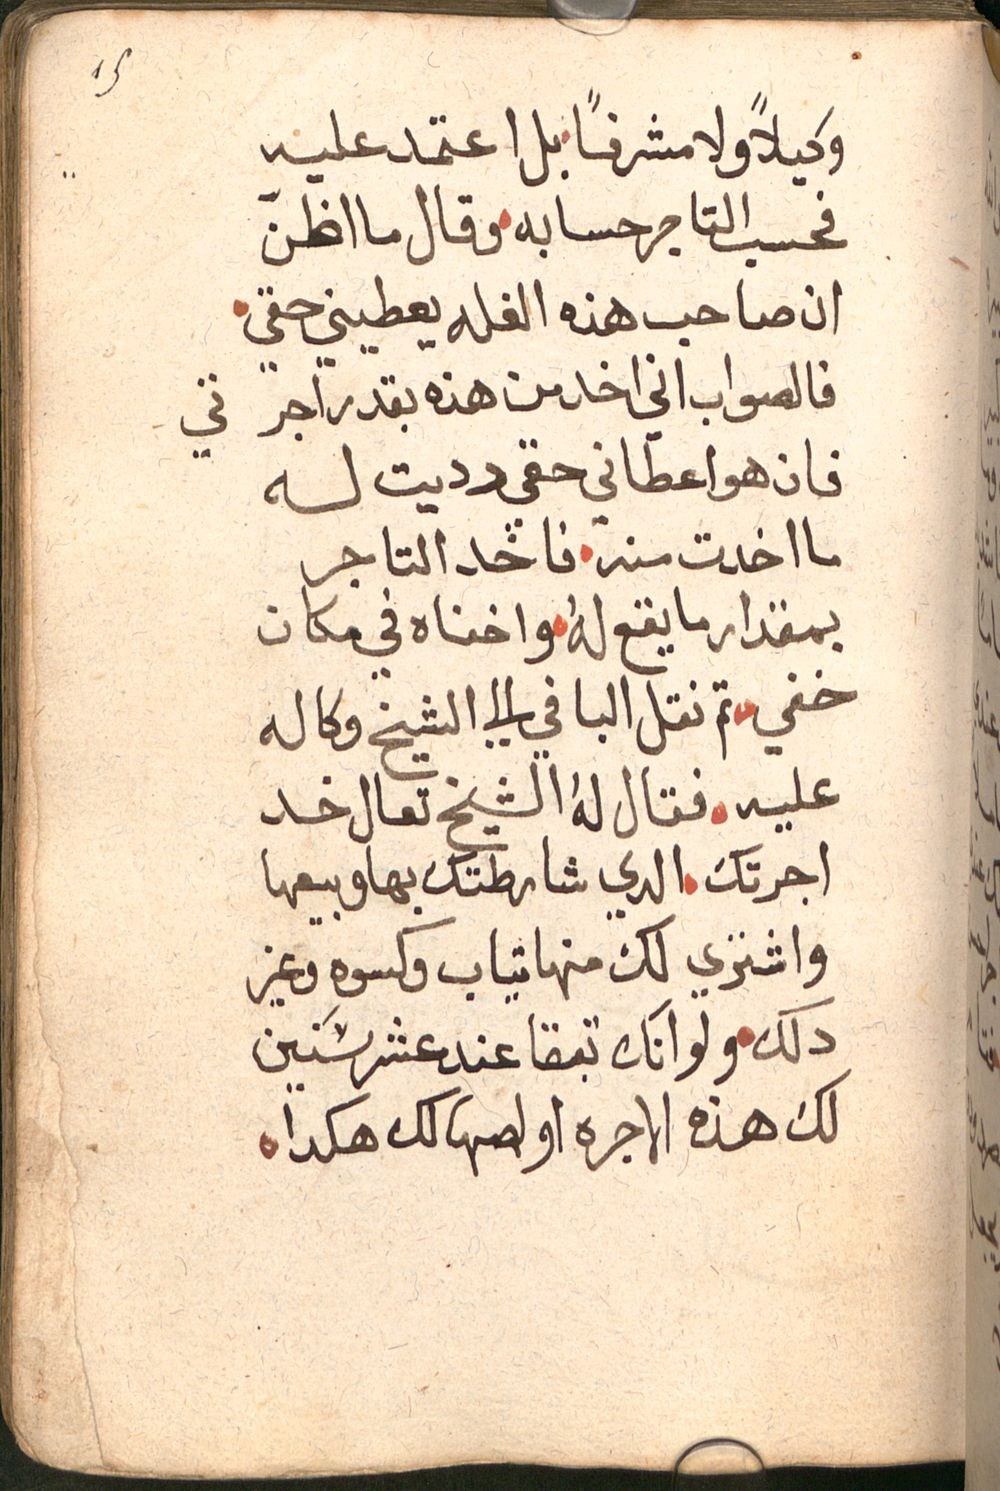 ١٥
وكيلاً ولا مشرفاً بل اعتمد عليه
فحسب التاجر حسابه وقال ما اظن
ان صاحب هذه الغله يعطيني حقي
فالصواب اني اخد من هذه بقدر اجرتي
فان هو اعطاني حقي رديت له
ما اخدت منه فاخد التاجر
بمقدار ما يقع له واخفاه في مكان
خفي تم نقل الباقي الى الشيخ وكاله
عليه فقال له الشيخ تعال خد
اجرتك الدي شارطتك بها وبيعها
واشتري لك منها تياب وكسوه وغير
دلك ولو انك تبقا عند عشر سنين
لك هذه الاجره اولصها لك هكدا